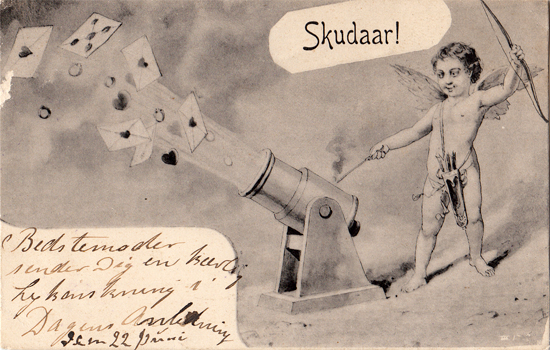 Skudaar!
Bedstemoder
sender Dig en kærlig
Lykønskning i
Dagens Anledning
den 22 Juni